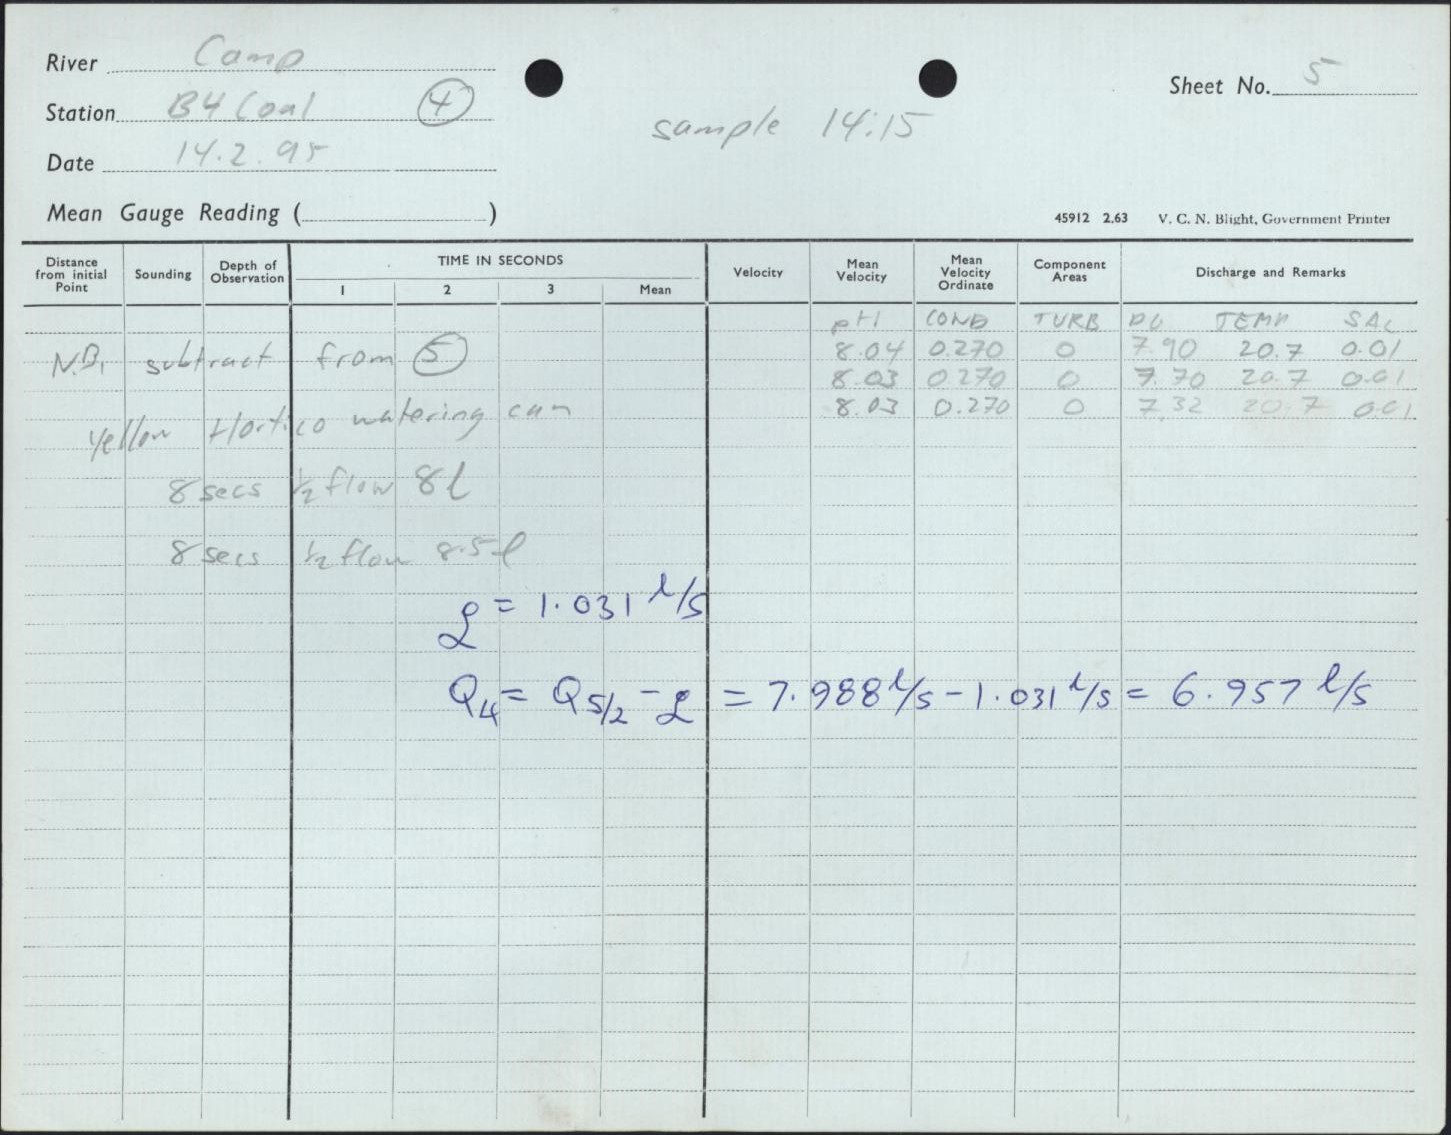 River Camp
Station B4 Coal 4
Date 14.2.95
Mean Gauge Reading ( )
sample 14:15
Sheet No. 5
45912 2.63 V. C. N. Blight, Government Printer
Distance from initial Point Sounding Depth of Observation TIME IN SECONDS Velocity Mean Velocity Mean Velocity Ordinate Component Areas Discharge and Remarks
1 2 3 Mean
pH COND TURB DO TEMP SAL
8.04 0.270 0 7.90 20.7 0.01
N.B. subtract from 5
8.03 0.270 0 7.70 20.7 0.01
8.03 0.270 0 7.32 20.7 0.01
Yellow Hortico watering can
8 secs 1/2 flow 8 l
8 secs 1/2 flow 8.5 l
= 1.031 l/s
Q4 = Q5/2 - = 7.988 l/s - 1.031 l/s = 6.957 l/s